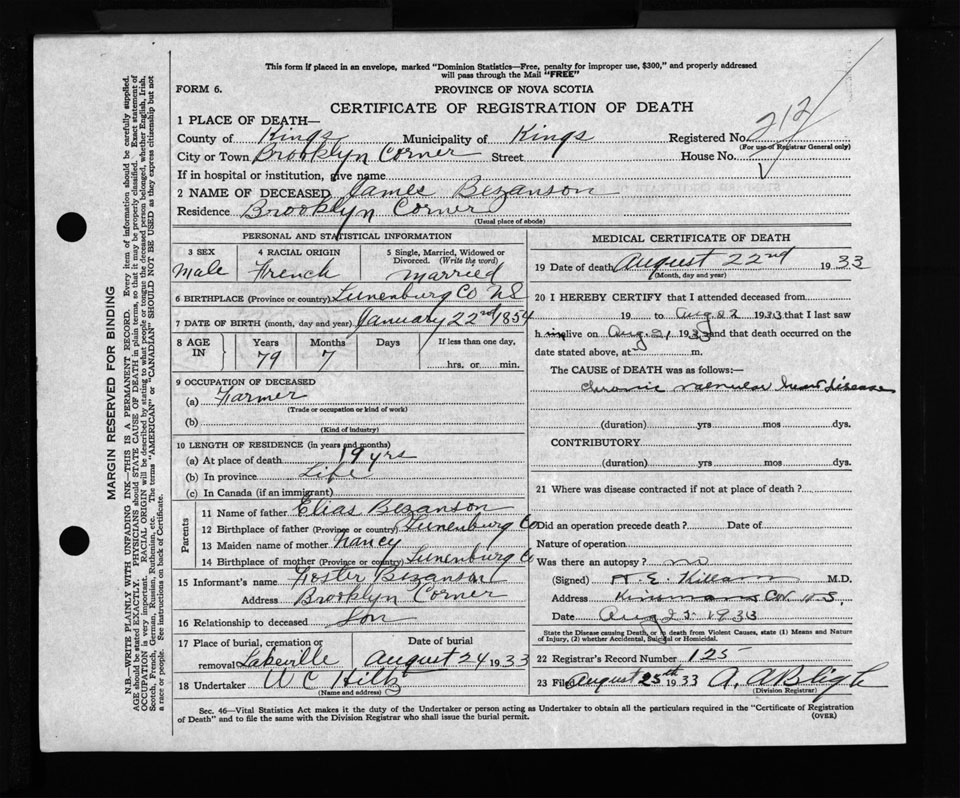 This form if placed in an envelope, marked "Dominion Statistics—Free, penalty for improper use, $300," and properly addressed
will pass through the Mail "FREE"
FORM 6. PROVINCE OF NOVA SCOTIA
CERTIFICATE OF REGISTRATION OF DEATH
1 PLACE OF DEATH—
County of Kings Municipality of Kings Registered No. 212
(For use of Registrar General only)
City or Town Brooklyn Corner Street House No.
If in hospital or institution, give name
2 NAME OF DECEASED James Bezanson
Residence Brooklyn Corner
(Usual place of abode)
PERSONAL AND STATISTICAL INFORMATION
3 SEX 4 RACIAL ORIGIN 5 Single, Married, Widowed or
Divorced. (Write the word)
Male French married
6 BIRTHPLACE (Province or country) Lunenburg Co NS
7 DATE OF BIRTH (month, day and year) January 22nd 1854
8 AGE IN Years Months Days If less than one day,
79 7 hrs. or min.
9 OCCUPATION OF DECEASED
(a) Farmer
(Trade or occupation or kind of work)
(b)
(Kind of industry)
10 LENGTH OF RESIDENCE (in years and months)
(a) At place of death 19 yrs
(b) In province Life
(c) In Canada (if an immigrant)
Parents
11 Name of father Elias Bezanson
12 Birthplace of father (Province or country) Lunenburg Co
13 Maiden name of mother Nancy
14 Birthplace of mother (Province or country) Lunenburg Co
15 Informant's name Foster Bezanson
Address Brooklyn Corner
16 Relationship to deceased Son
17 Place of burial, cremation or Date of burial
removal Lakeville August 24 1933
18 Undertaker W C Hiltz
(Name and address)
MEDICAL CERTIFICATE OF DEATH
19 Date of death August 22nd 1933
(Month, day and year)
20 I HEREBY CERTIFY that I attended deceased from
19 to Aug 22 1933 that I last saw
h im alive on Aug. 21, 1933 and that death occurred on the
date stated above, at m.
The CAUSE of DEATH was as follows:—
Chronic valvular heart disease
(duration) yrs mos dys.
CONTRIBUTORY
(duration) yrs. mos. dys.
21 Where was disease contracted if not at place of death?
Did an operation precede death? Date of
Nature of operation
Was there an autopsy? no
(Signed) H. E. Killam M.D.
Address Kinsmans Cor. N.S.
Date Aug 1933
State the Disease causing Death, or in death from Violent Causes, state (1) Means and Nature
of Injury, (2) whether Accidental, Suicidal or Homicidal.
22 Registrar's Record Number 125
23 Filed August 25th 1933 A. A Bligh
(Division Registrar)
Sec. 46—Vital Statistics Act makes it the duty of the Undertaker or person acting as Undertaker to obtain all the particulars required in the "Certificate of Registration
of Death" and to file the same with the Division Registrar who shall issue the burial permit. (OVER)
MARGIN RESERVED FOR BINDING
N.B.—WRITE PLAINLY WITH UNFADING INK—THIS IS A PERMANENT RECORD. Every item of information should be carefully supplied.
AGE should be stated EXACTLY. PHYSICIANS should STATE CAUSE OF DEATH in plain terms, so that it may be properly classified. Exact statement of
OCCUPATION is very important. RACIAL ORIGIN will be described by stating to what people or tongue the deceased person belonged, whether English, Irish,
Scotch, French, German, Russian, Ruthenian, etc. The terms "AMERICAN" or "CANADIAN" SHOULD NOT BE USED as they express citizenship but not
a race or people. See instructions on back of Certificate.